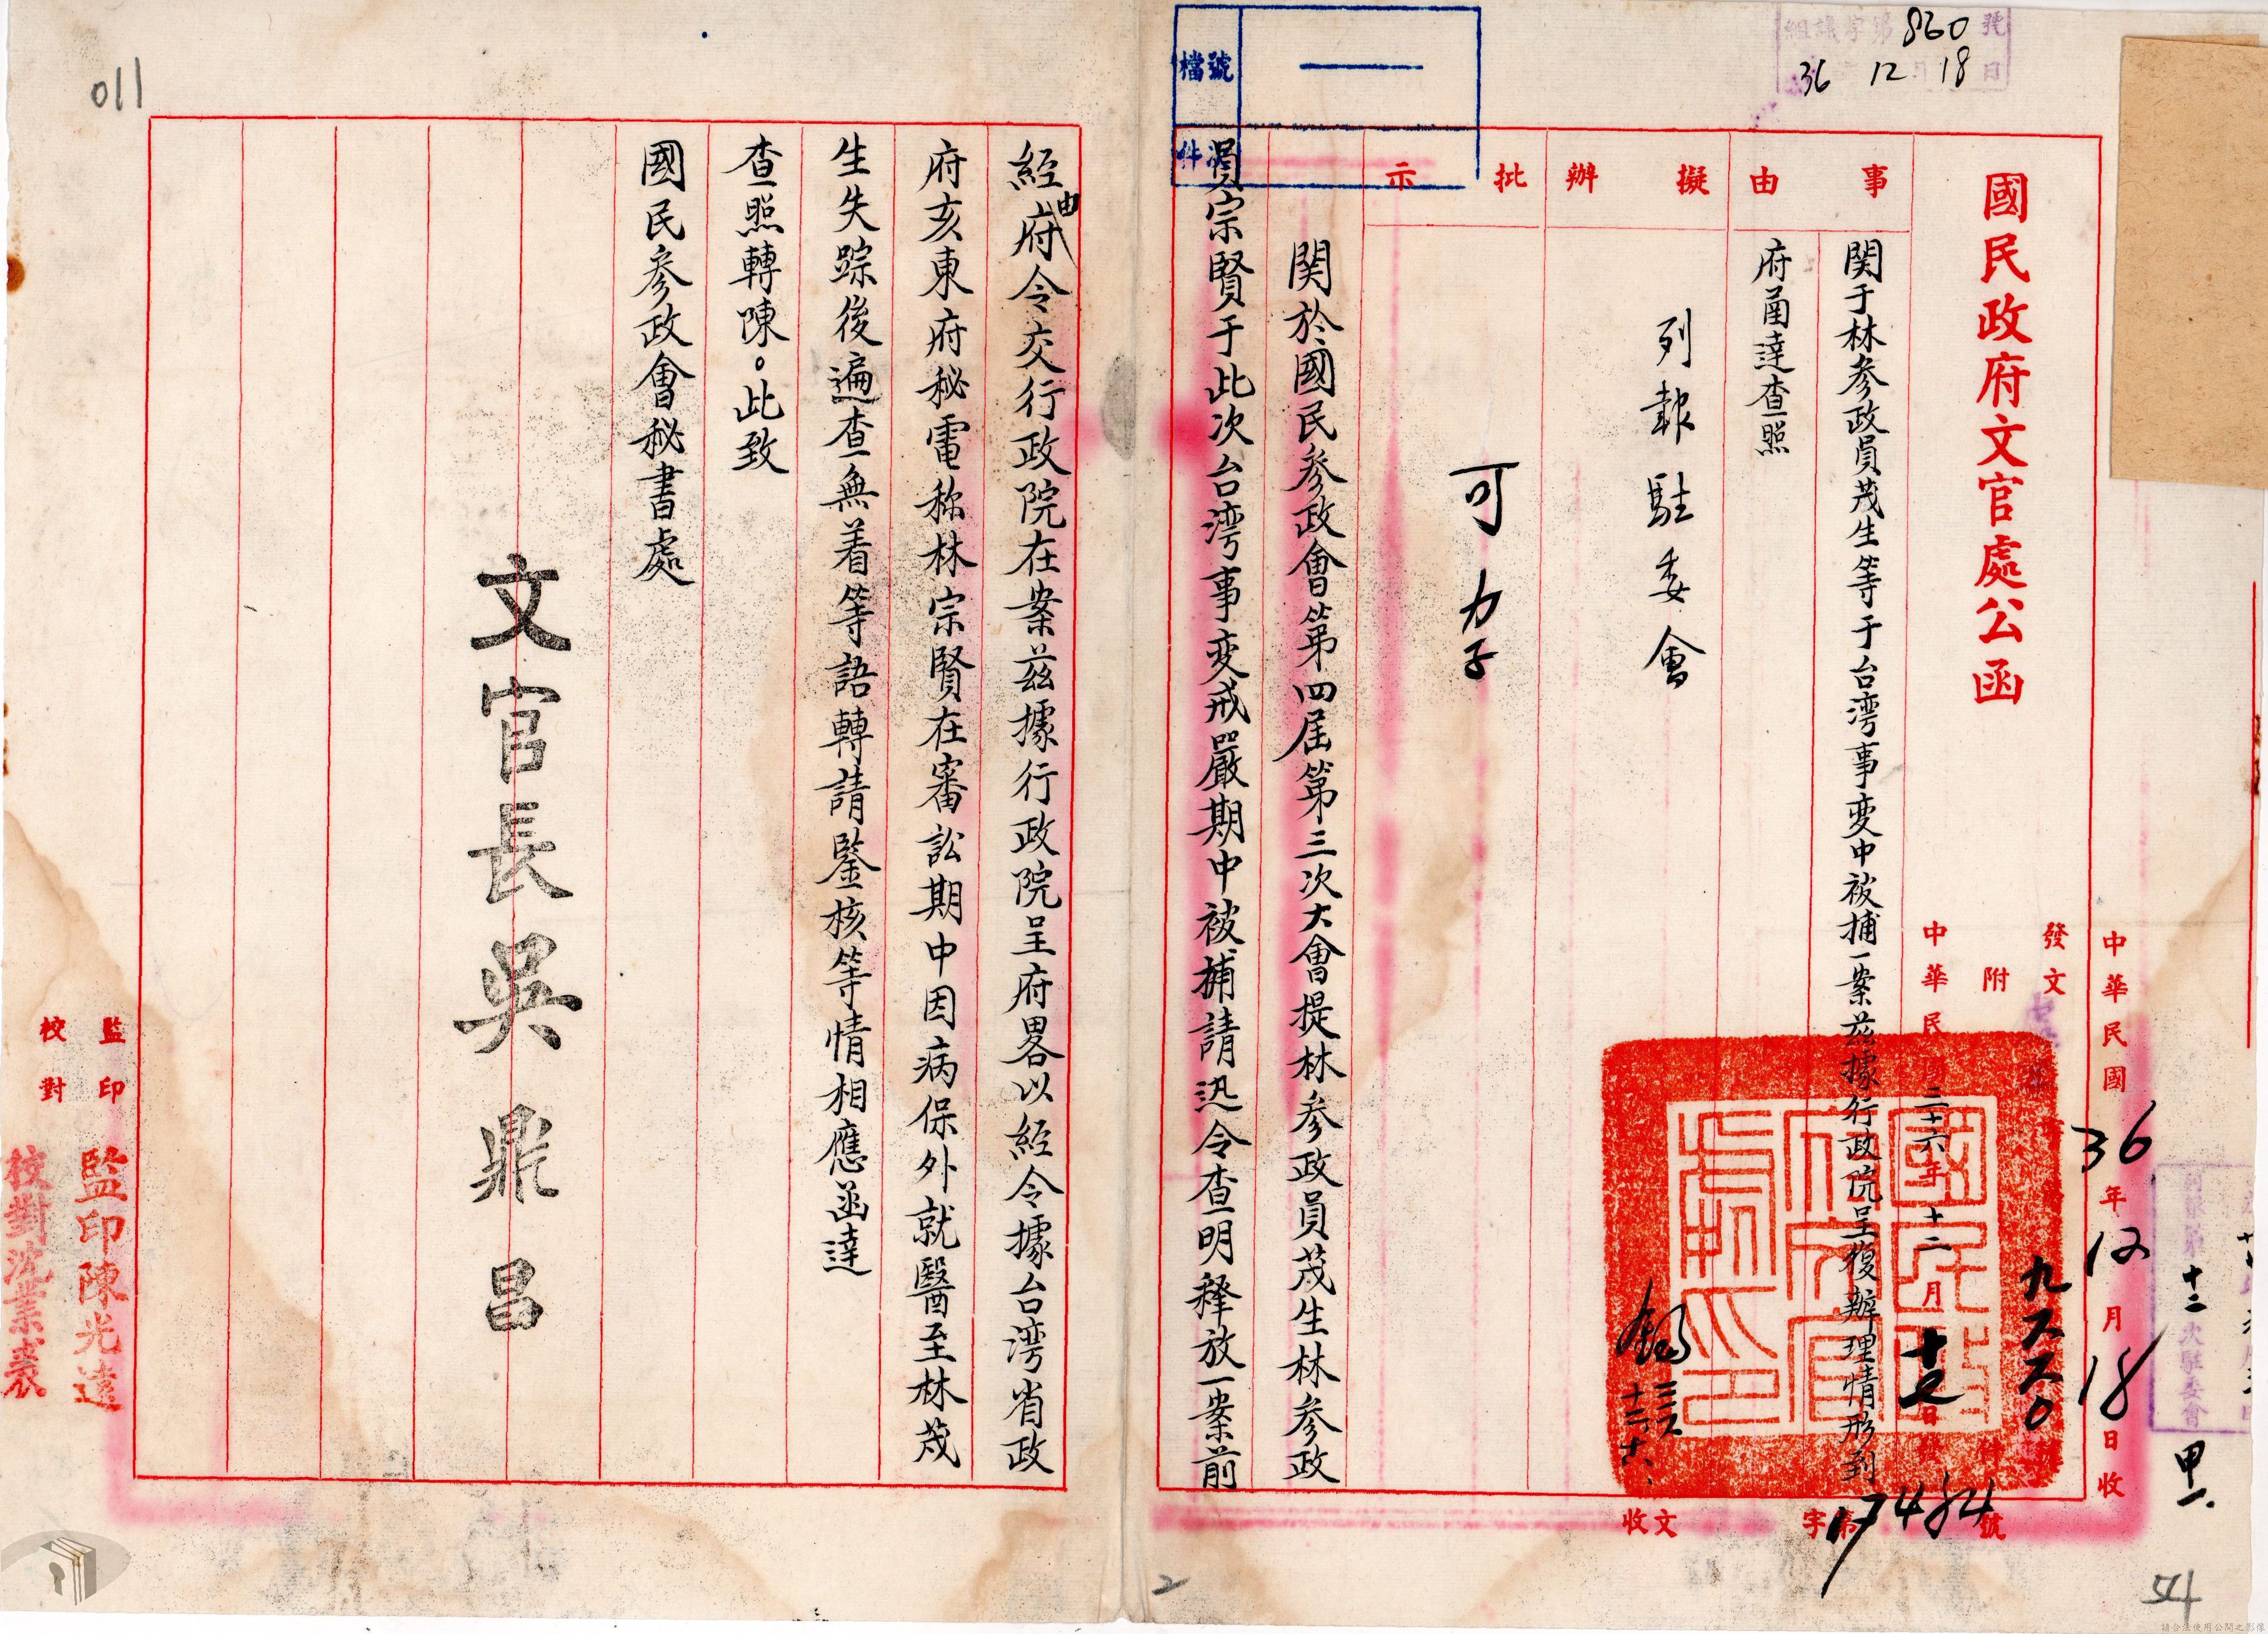 860
36 12 18
檔號
國民政府文官處公函
事由
関于林参政員茂生等于台湾事变中被捕一案茲據行政院呈復辦理情形到
府函達查照
擬辦
列報駐委會
批示
可 力子
中華民國36年12月18日收
發文
附
中華民國三十六年十二月十七日
收文 字第17484號
甲一
関於國民参政會第四屆第三次大會提林参政員茂生林参政
員宗賢于此次台湾事变戒嚴期中被捕請迅令查明释放一案前
經由府令交行政院在案茲據行政院呈府畧以經令據台湾省政
府亥東府秘電称林宗賢在審訟期中因病保外就醫至林茂
生失踪後遍查無着等語轉請鑒核等情相應函達
查照轉陳。此致
國民参政會秘書處
文官長吳鼎昌
監印
監印陳光遠
校對
011
2
54
請合法使用公開之影像